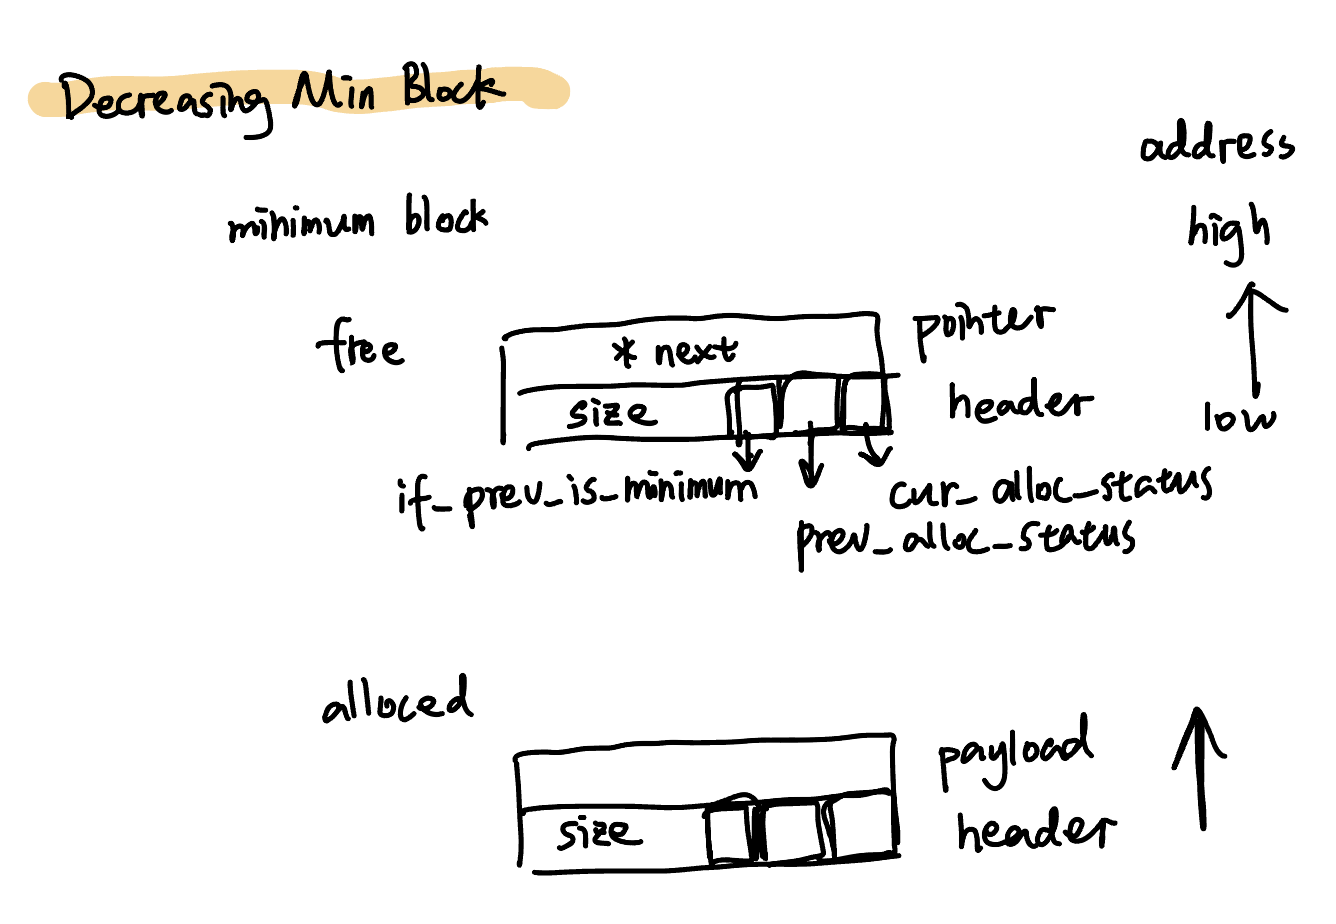 Decreasing Min Block
address
minimum block
high
free
* next
pointer
size
header
low
if_prev_is_minimum
cur_alloc_status
prev_alloc_status
alloced
payload
size
header